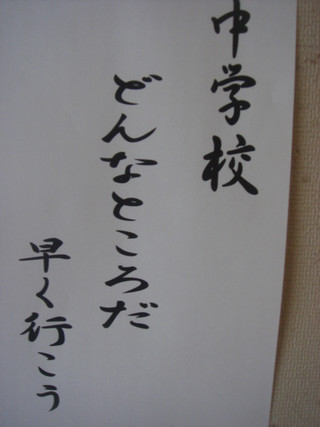 中学校
どんなところだ
早く行こう